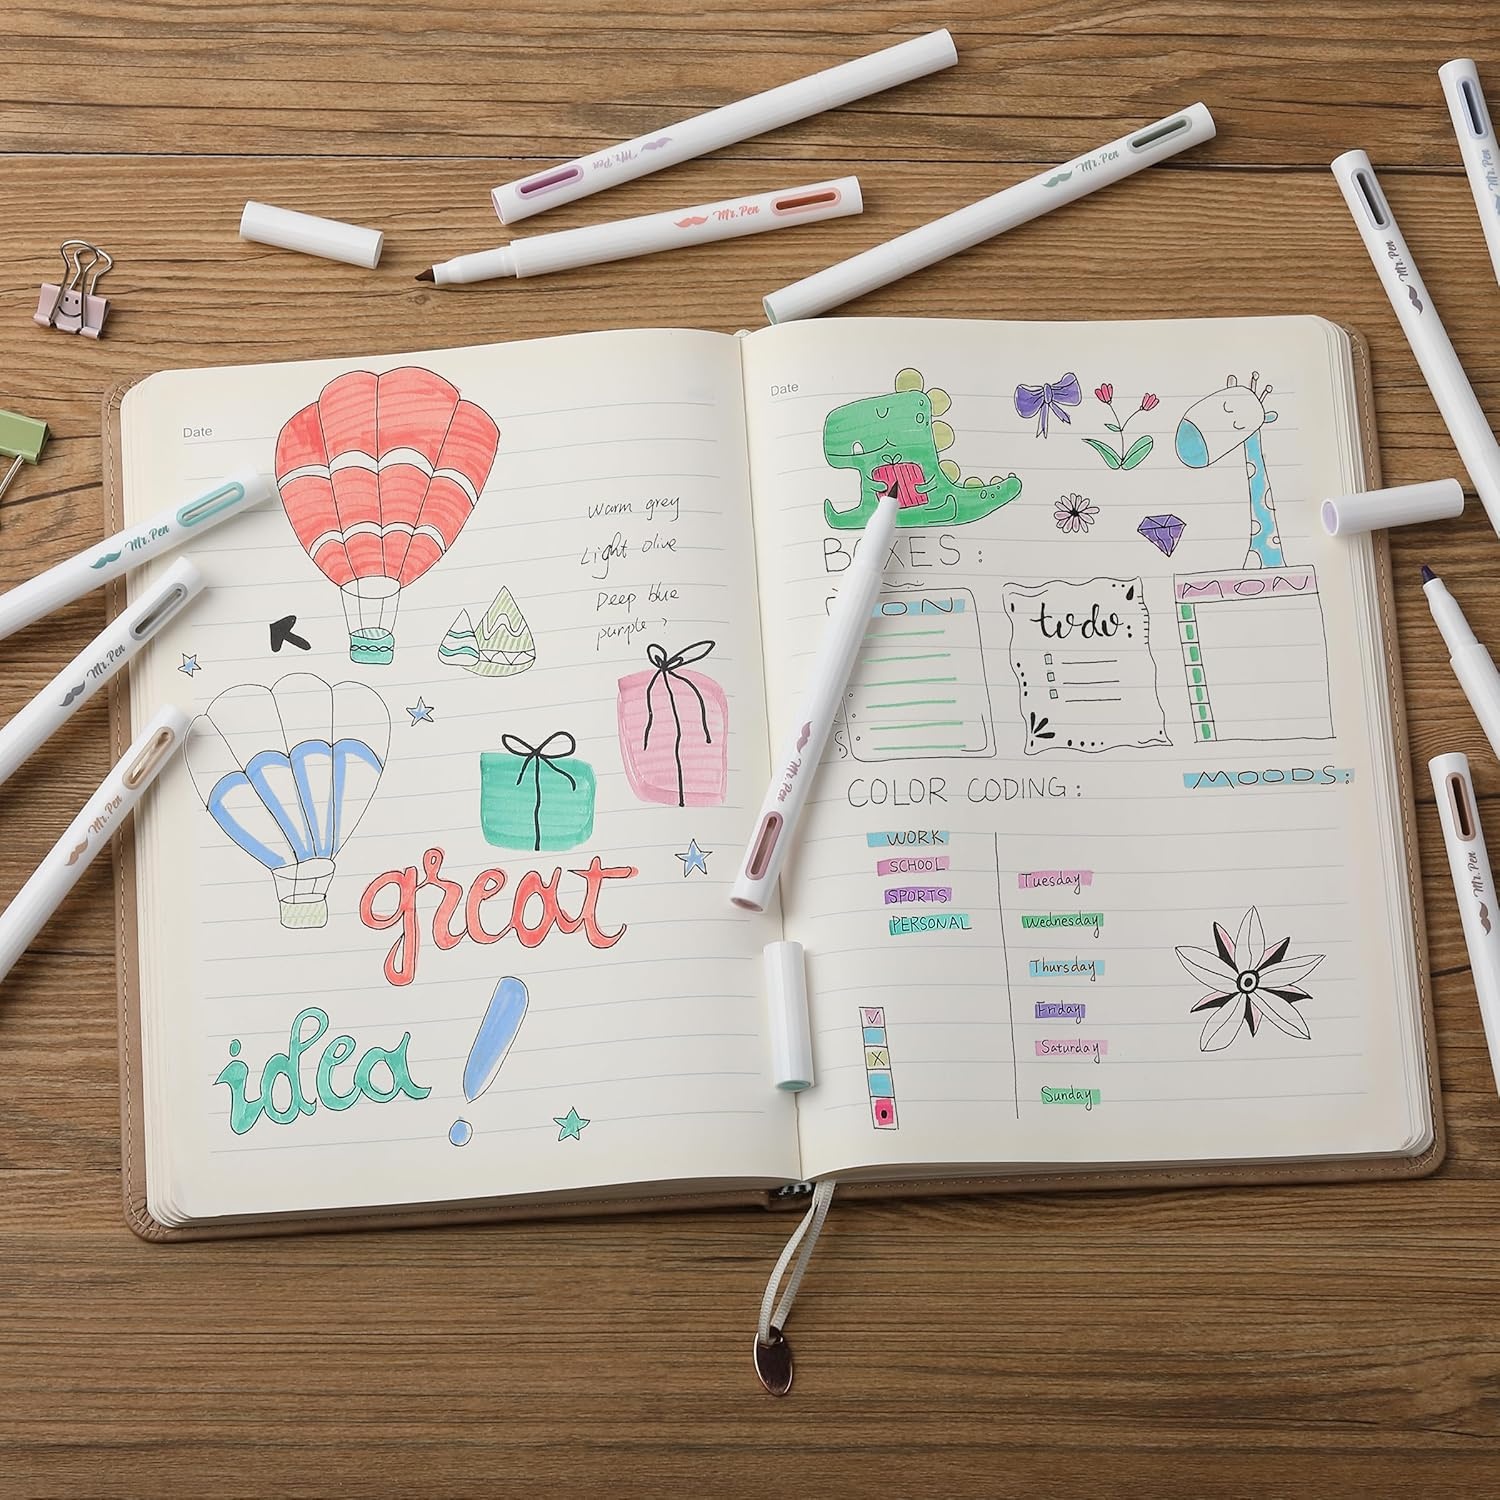 Mr. Pen
Mr. Pen
Mr. Pen
Mr. Pen
Date
warm grey
Light olive
Deep blue
purple ?
great
idea!
Mr. Pen
Mr. Pen
Mr. Pen
Date
BOXES :
to do:
MON
COLOR CODING :
MOODS :
WORK
SCHOOL
SPORTS
PERSONAL
Tuesday
Wednesday
Thursday
Friday
Saturday
Sunday
Mr. Pen
Mr. Pen